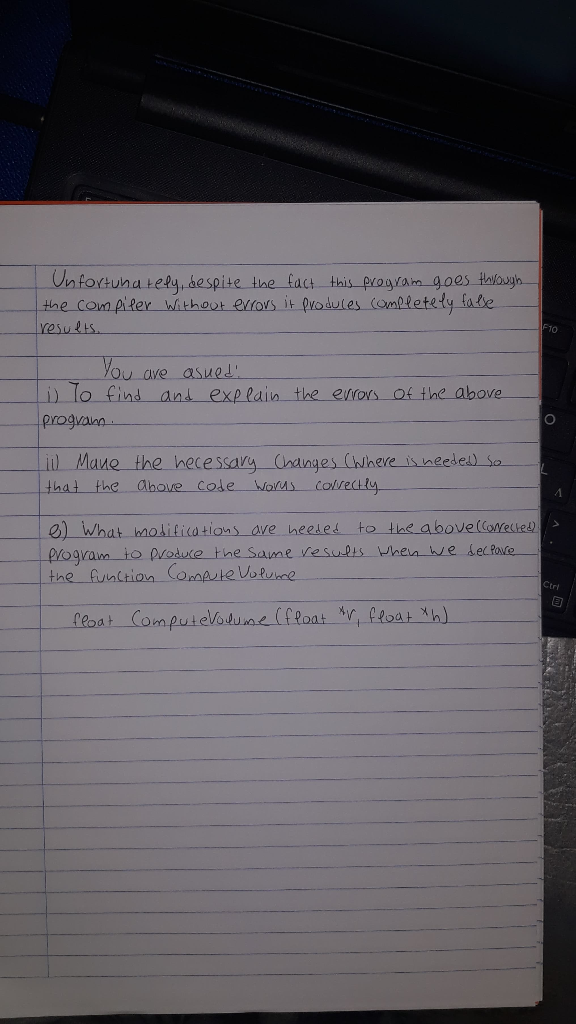 Unfortunately, despite the fact this program goes through
the compiler without errors it produces completely false
results.
You are asked:
i) To find and explain the errors of the above
program.
ii) Make the necessary changes (where is needed) so
that the above code works correctly
e) What modifications are needed to the above (corrected)
program to produce the same results when we declare
the function ComputeVolume
float ComputeVolume (float *r, float *h)
F10
O
L
Ctrl